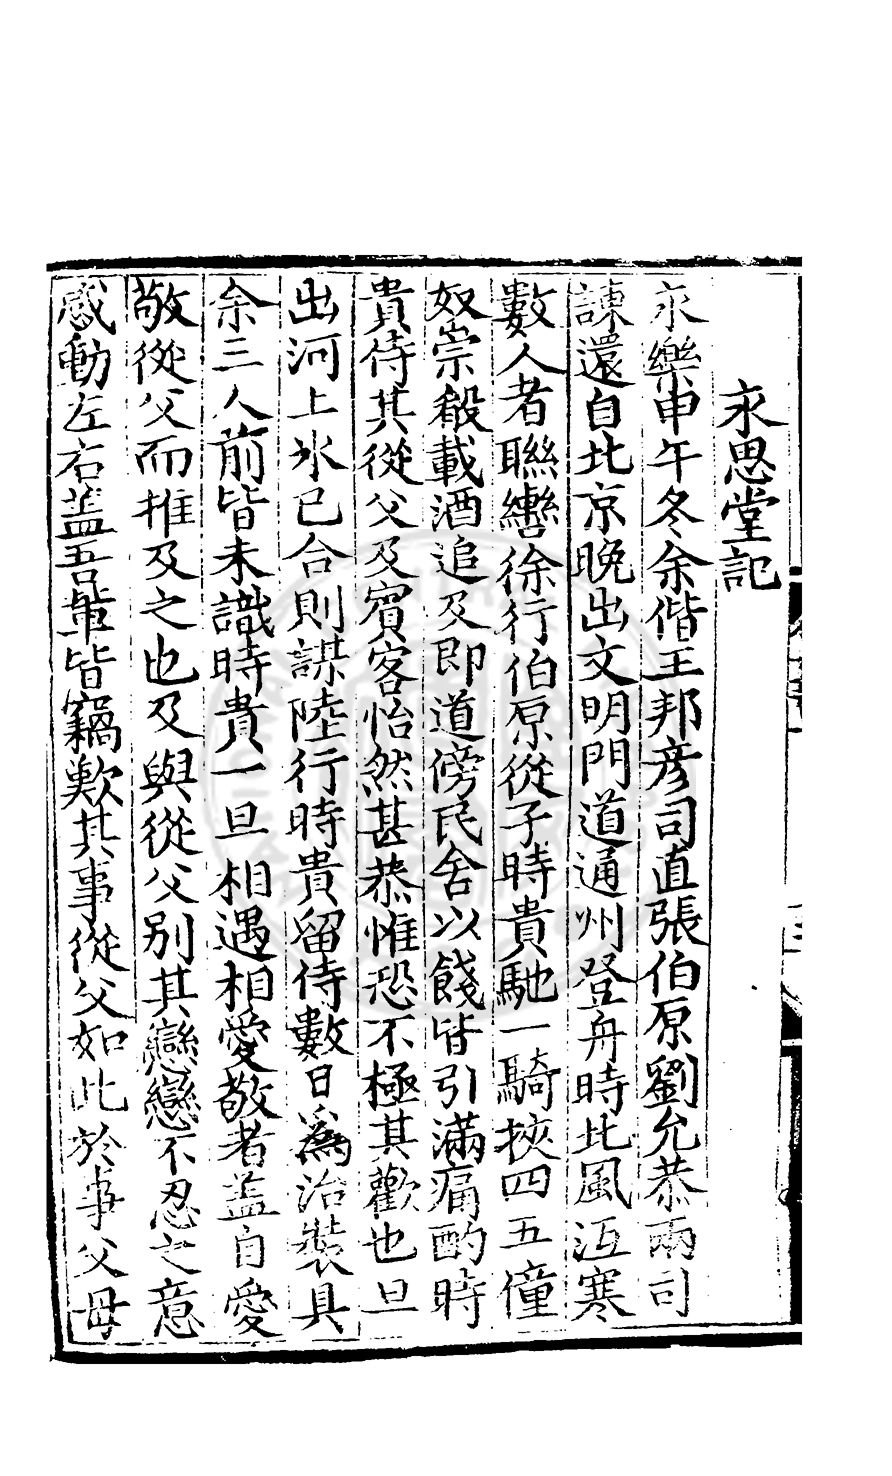 永思堂記
永樂甲午冬余偕王邦彦司直張伯原劉允恭兩司
諫還自北京晚出文明門道通州登舟時北風沍寒
數人者聯轡徐行伯原從子時貴馳一騎挾四五僮
奴崇殽載酒追及即道傍民舍以餞皆引滿痛酌時
貴侍其從父及賓客怡然甚恭惟恐不極其歡也旦
出河上氷已合則謀陸行時貴留侍數日爲治裝具
余三人前皆未識時貴一旦相遇相愛敬者盖自愛
敬從父而推及之也及與從父别其戀戀不忍之意
感動左右盖吾軰皆竊歎其事從父如此於事父母